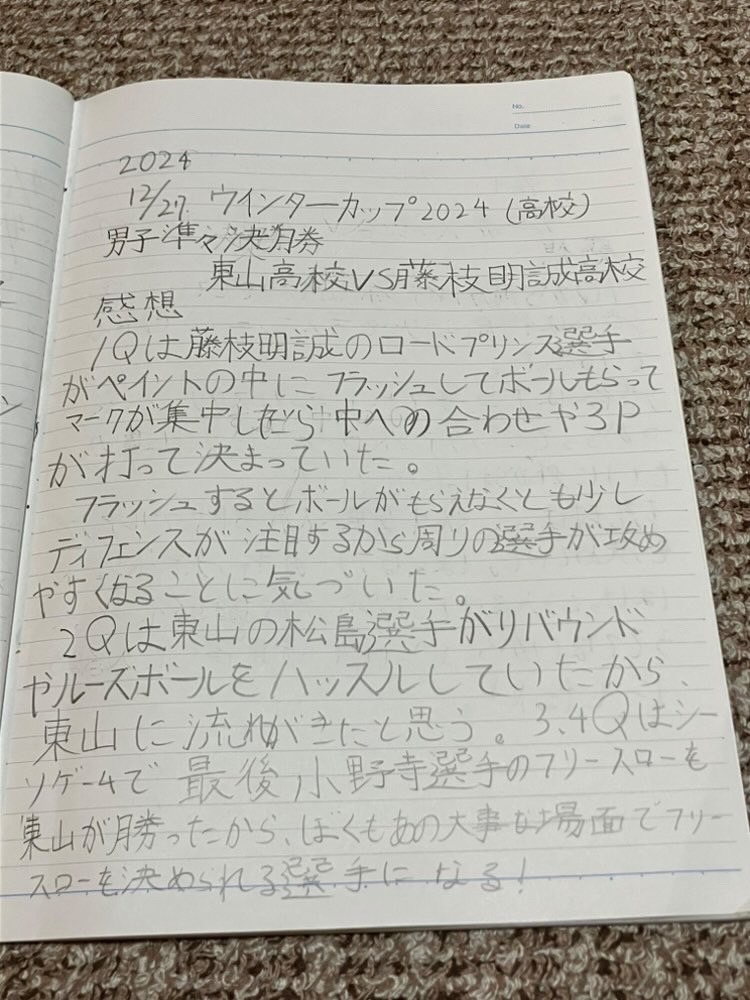 No.
Date
2024
12/27 ウインターカップ2024 (高校)
男子準々決勝
東山高校VS藤枝明誠高校
感想
1Qは藤枝明誠のロードプリンス選手
がペイントの中にフラッシュしてボールもらって
マークが集中しだら中への合わせや3P
が打って決まっていた。
フラッシュするとボールがもらえなくとも少し
ディフェンスが注目するから周りの選手が攻め
やすくなることに気づいた。
2Qは東山の松島選手がリバウンド
やルーズボールをハッスルしていたから、
東山に流れがきたと思う。3、4Qはシー
ソゲームで最後、小野寺選手のフリースローを
東山が勝ったから、ぼくもあの大事な場面でフリー
スローを決められる選手になる!